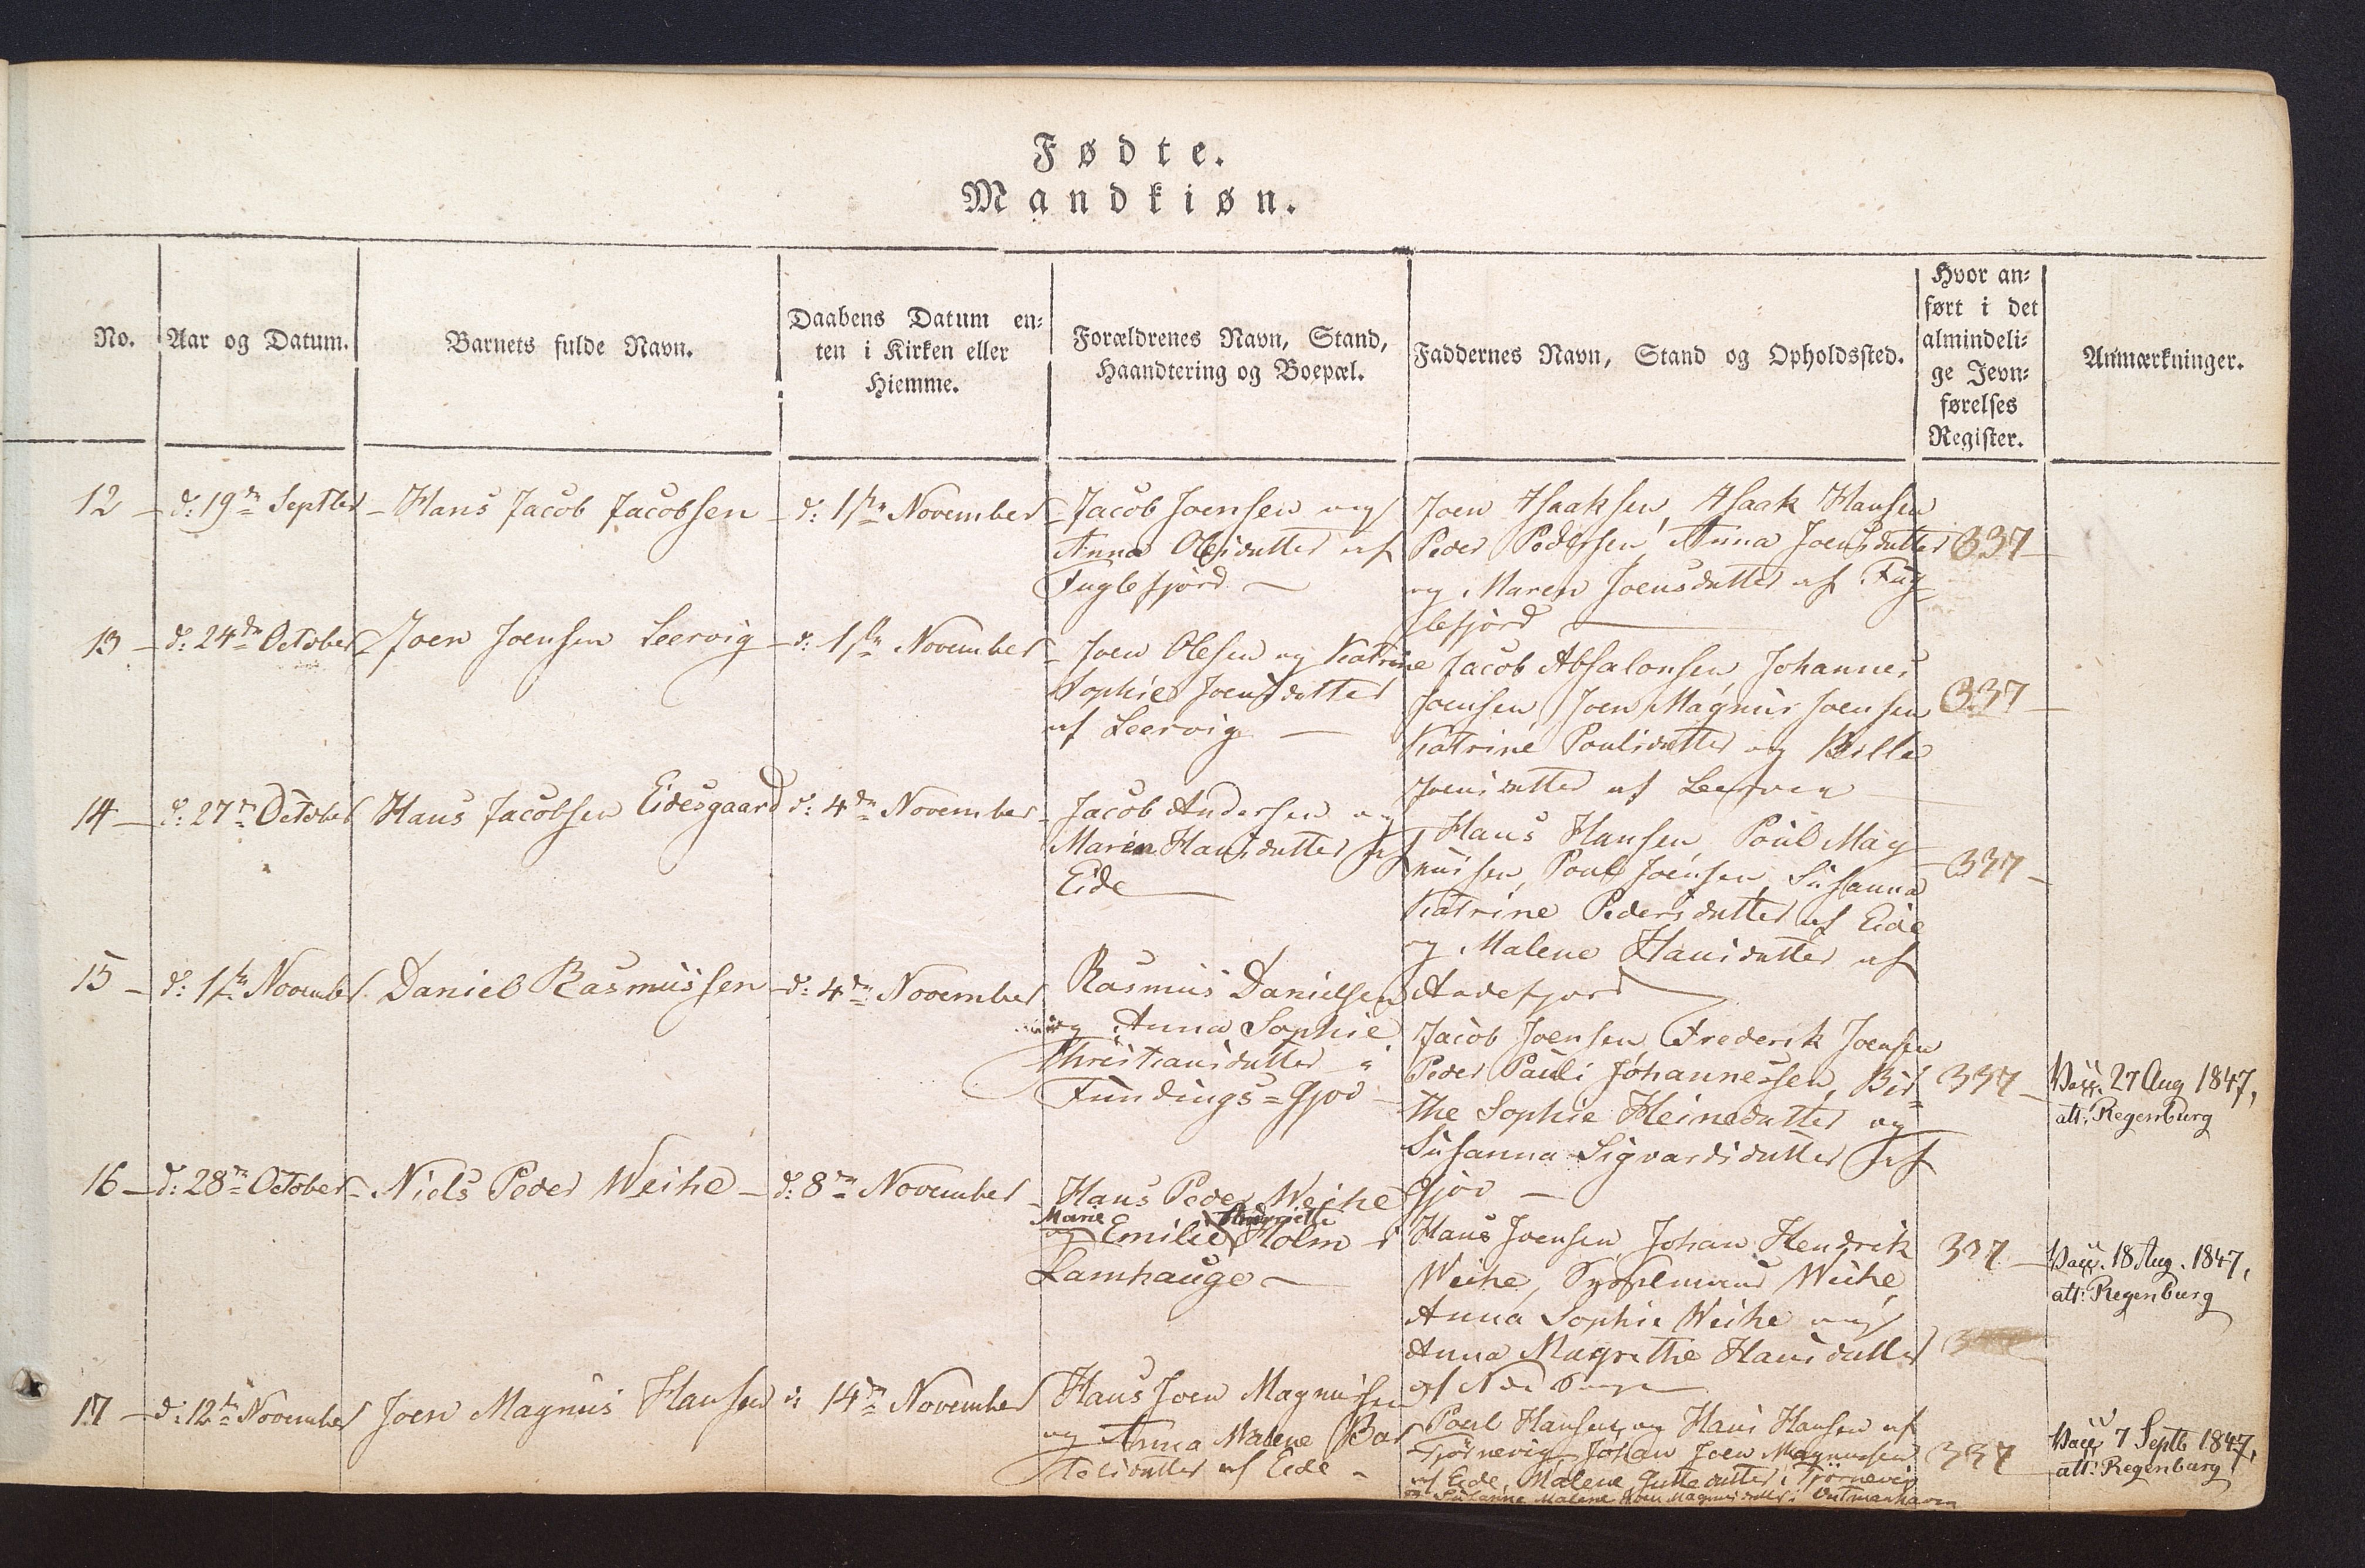 Fødte.
Mandkiøn.
No.
Aar og Datum.
Barnets fulde Navn.
Daabens Datum en-
ten i Kirken eller
Hiemme.
Forældrenes Navn, Stand,
Haandtering og Boepæl.
Faddernes Navn, Stand og Opholdssted.
Hvor an-
ført i det
almindeli-
ge Jevn-
førelses
Register.
Anmærkninger.
12 - d: 19de Septber - Hans Jacob Jacobsen - d: 1ste November
Jacob Joensen og
Anna Olesdatter af
Fuglefjord -
Joen Isaksen, Isaak Hansen
Peder Pedersen, Anna Joensdatter
og Maren Joensdatter af Fug-
lefjord
337
13 - d: 24de October Joen Joensen Leervig - d: 1ste November
Joen Olesen og Katrine
Sophie Joensdatter
af Leervig -
Jacob Absalonsen, Johannes
Joensen, Joen Magnus Joensen
Katrine Poulsdatter og Bille
Joensdatter af Leervig
337
14 - d: 27de October Hans Jacobsen Eidesgaard d: 4de November
Jacob Andersen og
Maren Hansdatter af
Eide
Hans Hansen, Poul Mag-
nussen, Poul Joensen, Susanna
Katrine Pedersdatter af Eide
og Malene Hansdatter af
Andefjord
337
15 - d: 1ste November Daniel Rasmussen - d: 4de November
Rasmus Danielsen
og Anna Sophie
Christiansdatter i
Fundings=Gjov -
Jacob Joensen, Frederik Joensen
Peder Pauli Johannessen, Bir=
the Sophie Heinesdatter og
Susanna Sigvardsdatter af
Gjov -
337
Vacc. 27 Aug 1847,
att: Regenburg
16 - d: 28de October - Niels Peder Weihe - d: 8de November
Hans Peder Weihe
Marie Henriette
og Emilie Holm i
Lamhauge -
Hans Joensen, Johan Hendrik
Weihe, Sysselmand Weihe,
Anna Sophie Weihe og
Anna Magrethe Hansdatter
af
337
Vacc. 18 Aug. 1847,
att: Regenburg
17 - d: 12te November Joen Magnus Hansen d: 14de November
Hans Joen Magnussen
og Anna Malene Bar-
tolsdatter af Eide -
Poul Hansen og Hans Hansen af
Tjørnevig, Johan Joen Magnussen
af Eide, Malene Guttesdatter i Tjørnevig
og Susanne Malene Joen Magnusdatter i
337
Vacc 7 Septb 1847,
att: Regenburg